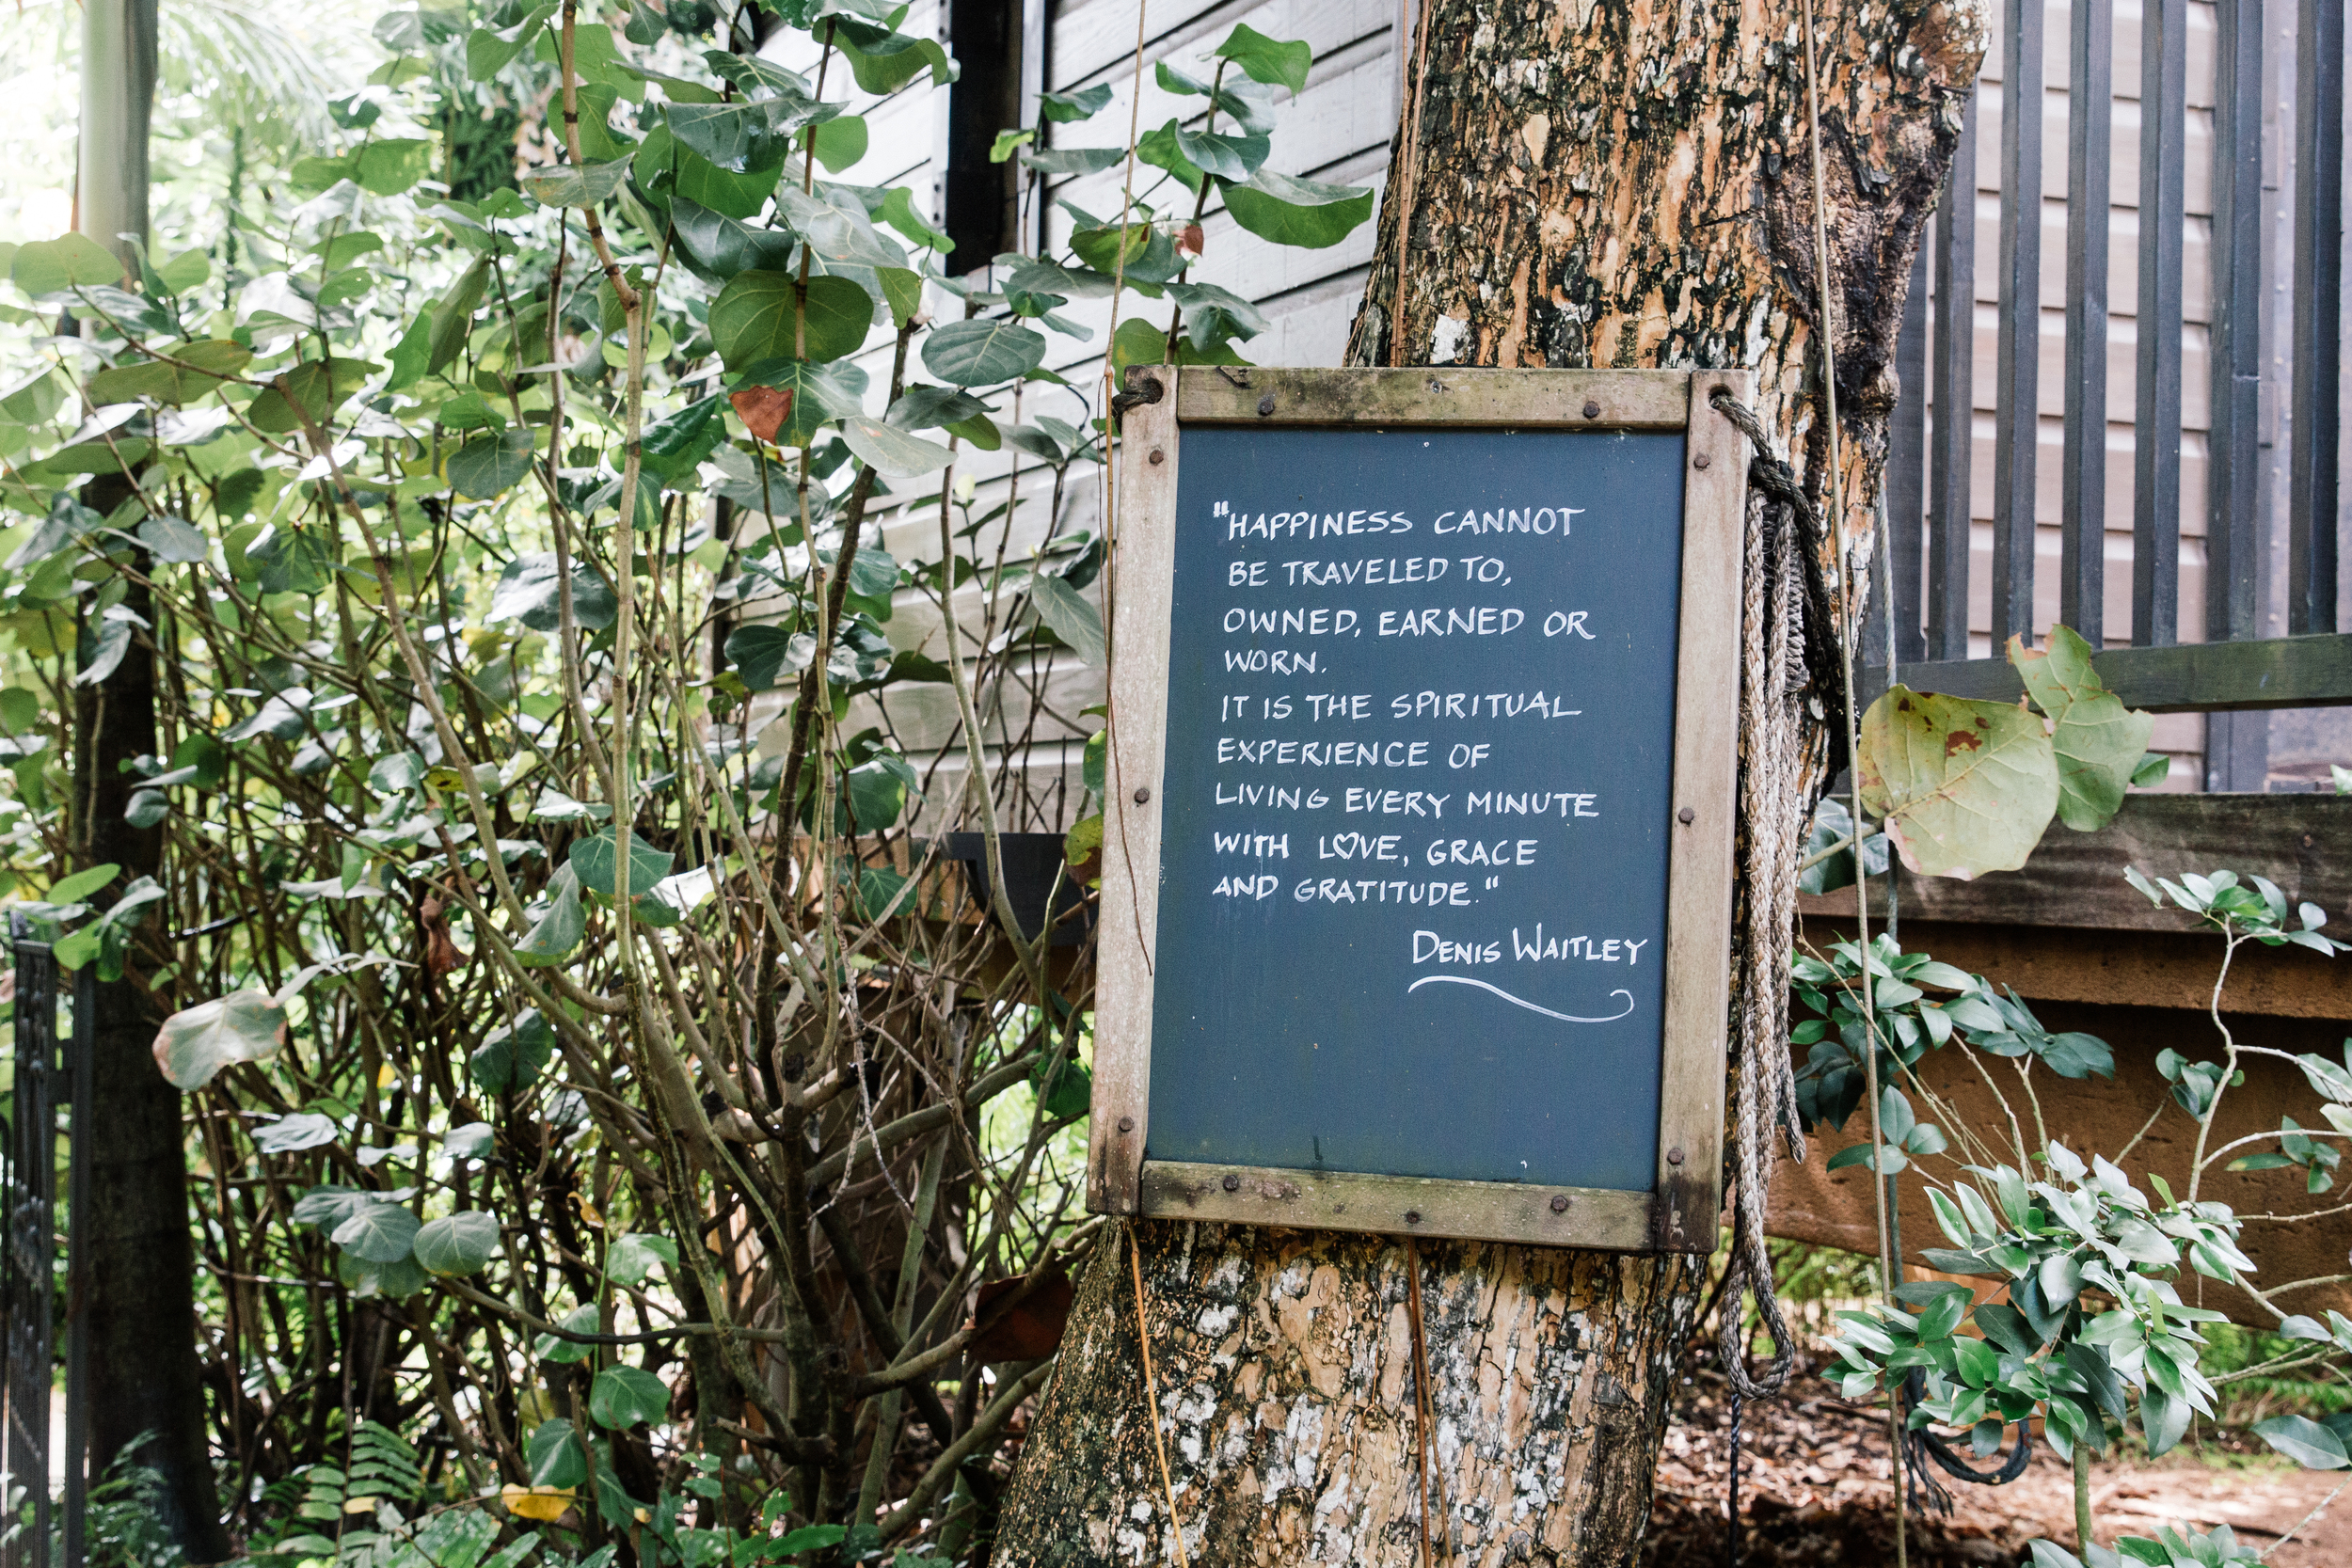 "HAPPINESS CANNOT
BE TRAVELED TO,
OWNED, EARNED OR
WORN.
IT IS THE SPIRITUAL
EXPERIENCE OF
LIVING EVERY MINUTE
WITH LOVE, GRACE
AND GRATITUDE."
DENIS WAITLEY